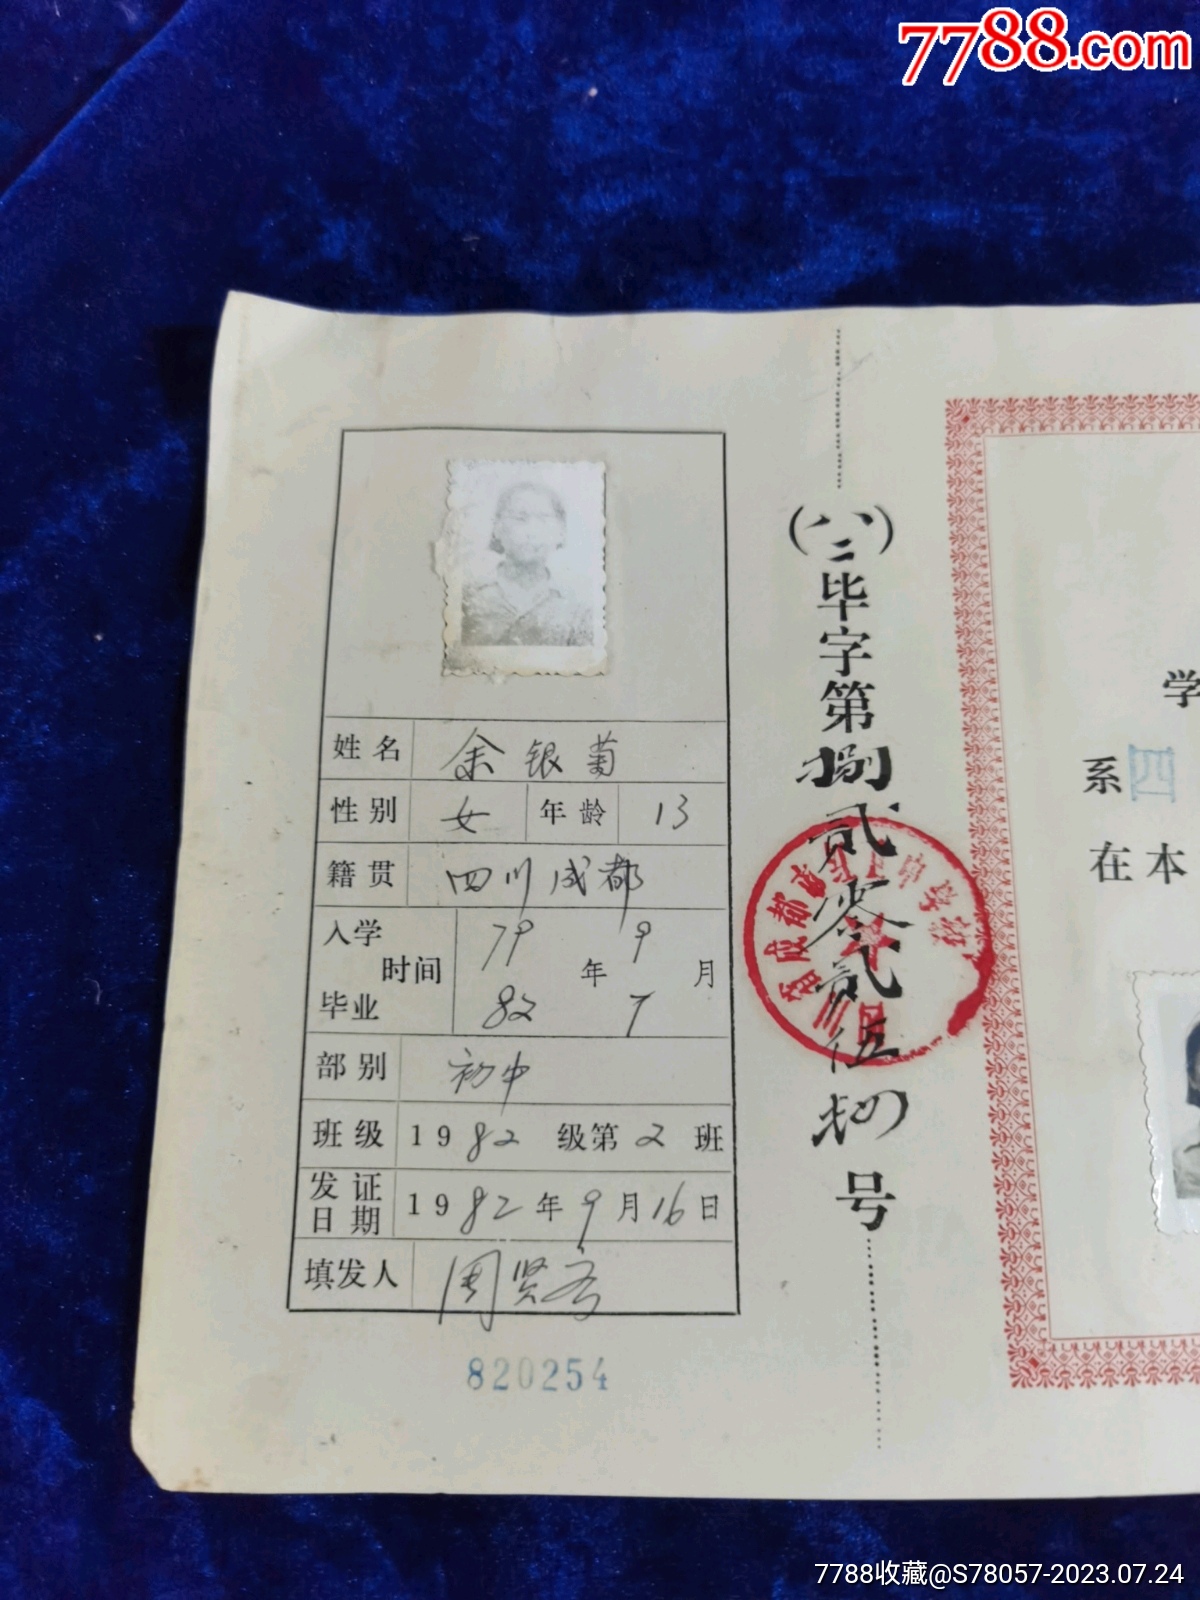 7788.com
姓名 余银菊
性别 女 年龄 13
籍贯 四川成都
入学 79 9
时间 年 月
毕业 82 7
部别 初中
班级 1982级第2班
发证日期 1982年9月16日
填发人 周贤
820254
(八二)毕字第捌贰零贰伍肆号
学
系四
在本
7788收藏@S78057-2023.07.24